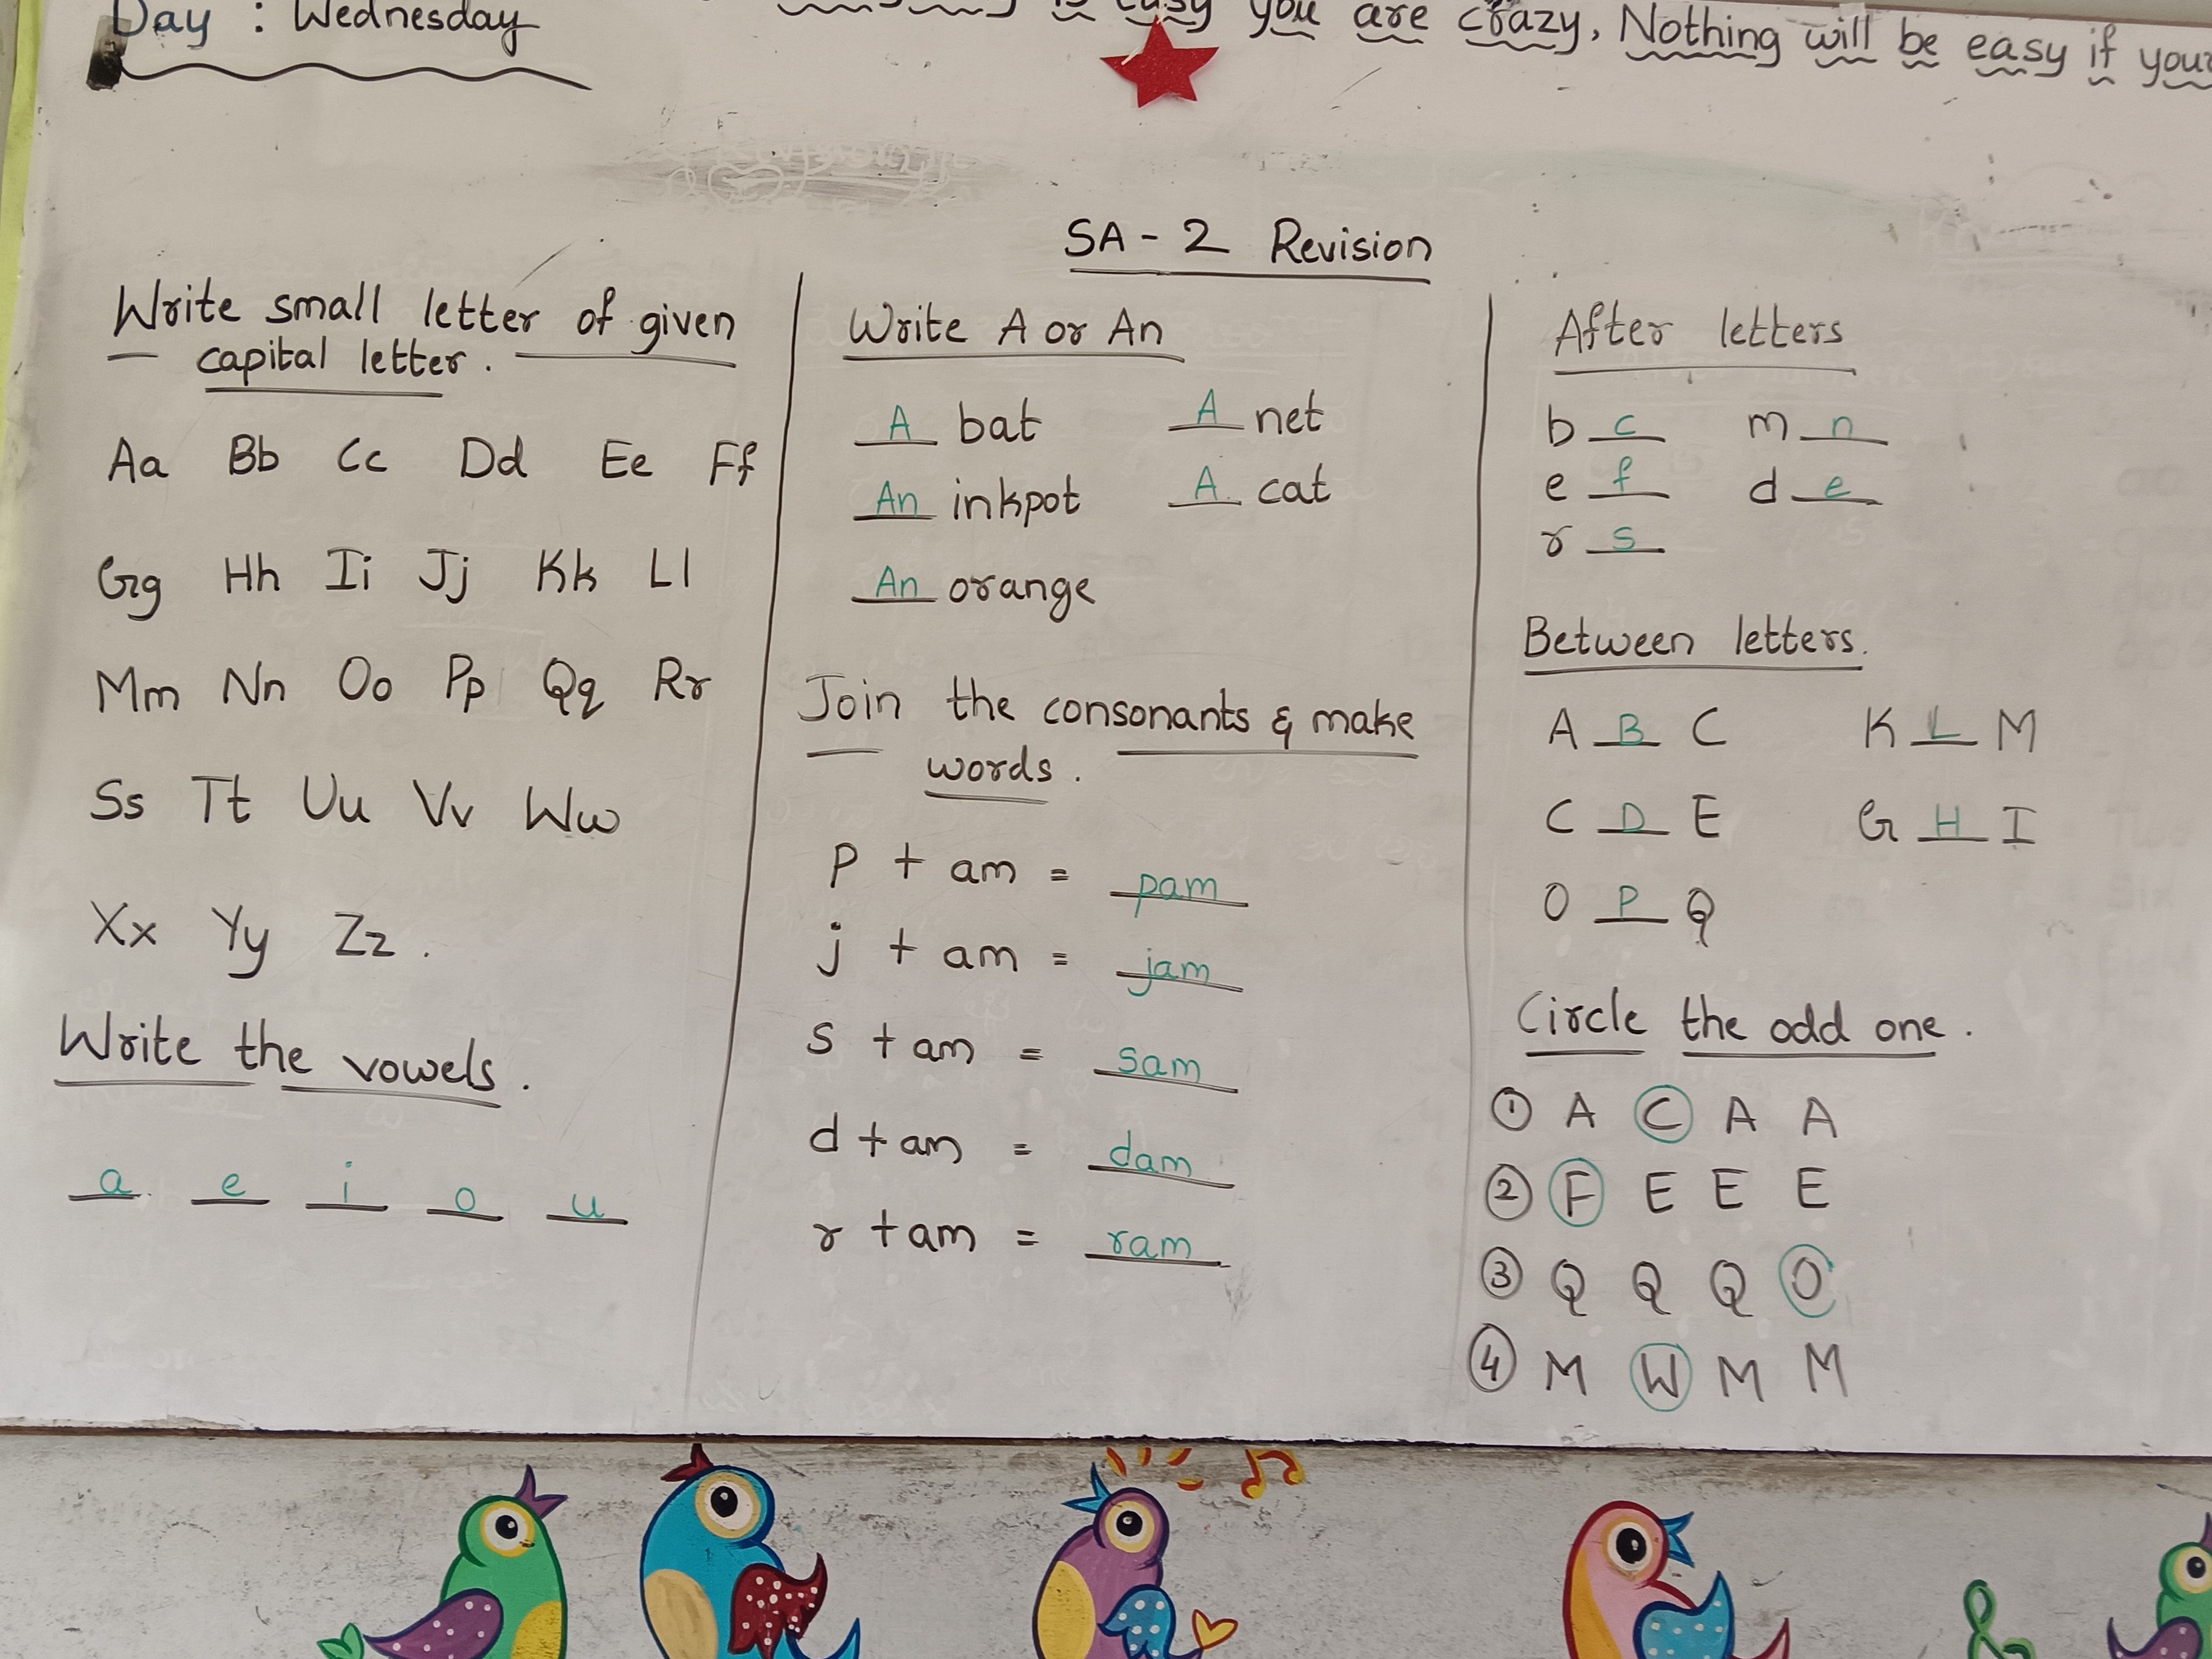 Day : Wednesday
is easy you are crazy, Nothing will be easy if your
SA - 2 Revision
Write small letter of given
capital letter.
Aa Bb Cc Dd Ee Ff
Gg Hh Ii Jj Kk Ll
Mm Nn Oo Pp Qq Rr
Ss Tt Uu Vv Ww
Xx Yy Zz.
Write the vowels.
a e i o u
Write A or An
A bat A net
An inkpot A cat
An orange
Join the consonants & make
words.
p + am = pam
j + am = jam
s + am = sam
d + am = dam
r + am = ram
After letters
b c m n
e f d e
r s
Between letters.
A B C K L M
C D E G H I
O P Q
Circle the odd one.
1 A C A A
2 F E E E
3 Q Q Q O
4 M W M M